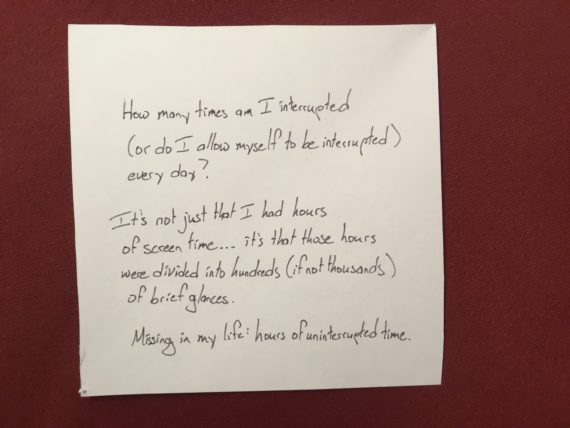 How many times am I interrupted
(or do I allow myself to be interrupted)
every day?
It's not just that I had hours
of screen time... it's that those hours
were divided into hundreds (if not thousands)
of brief glances.
Missing in my life: hours of uninterrupted time.